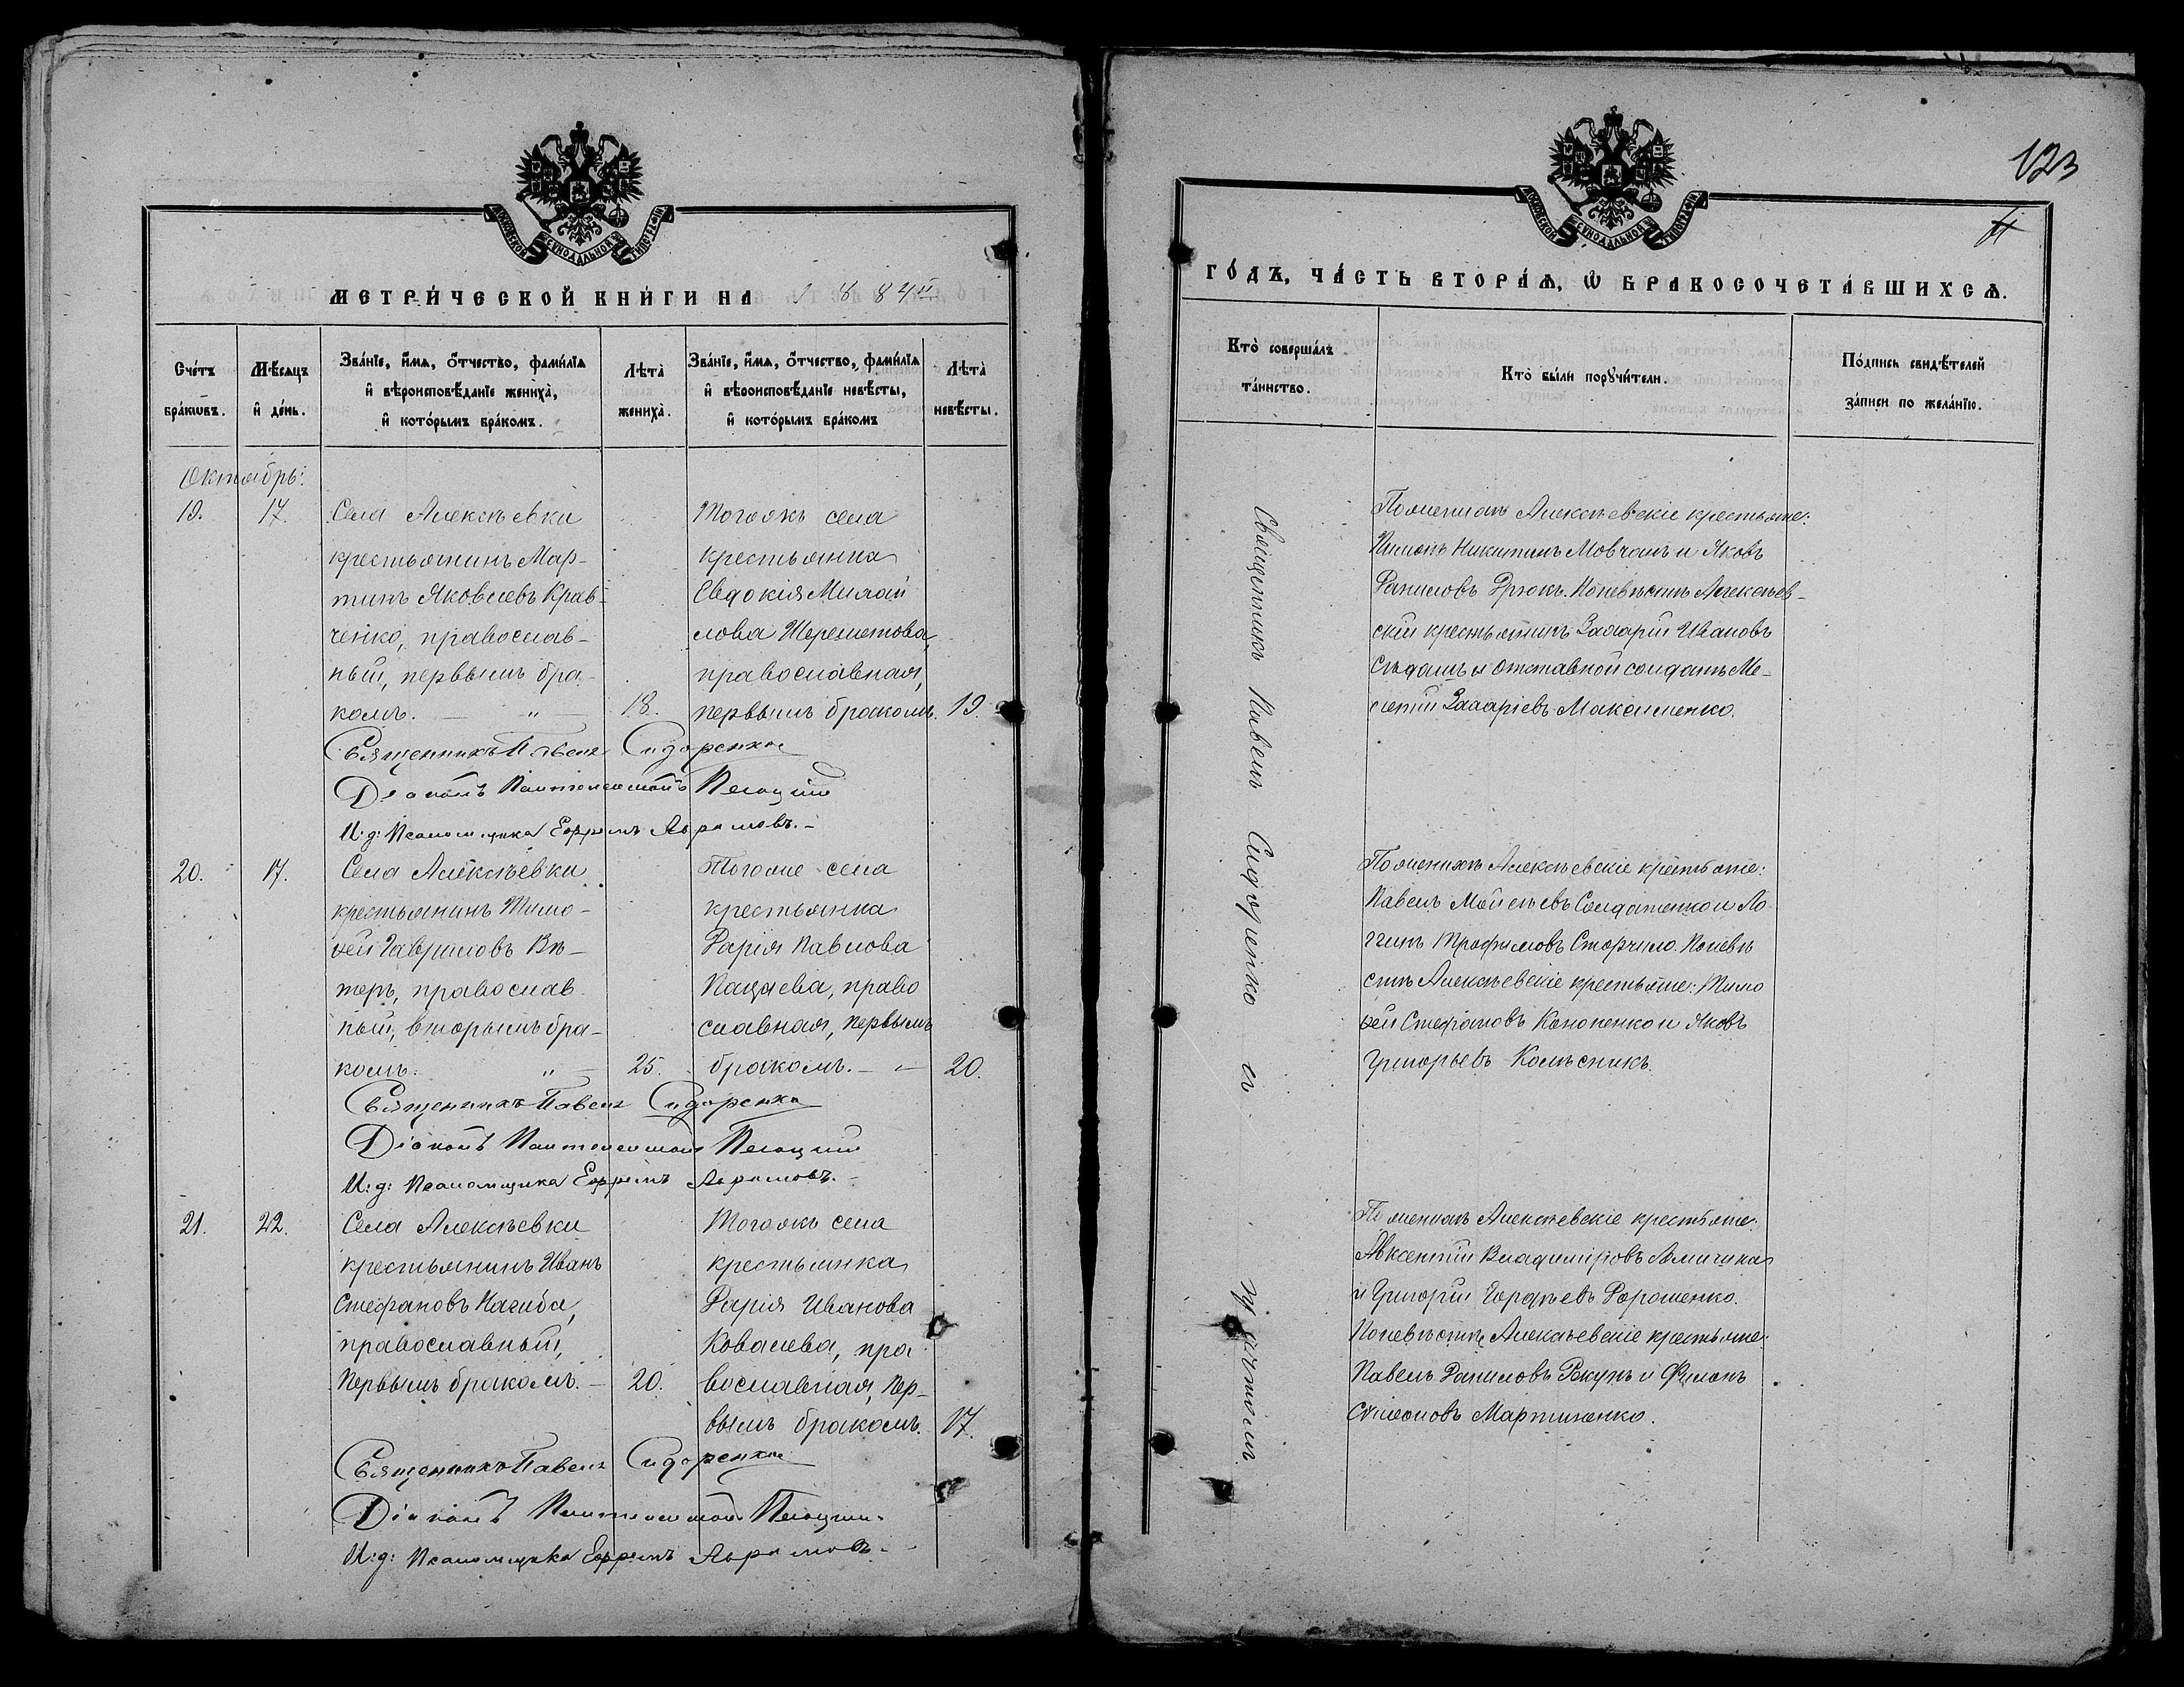 МОСКОВСКОЙ СУНОДАЛЬНОЙ ТИПОГРАФІИ
МЕТРИ́ЧЕСКОЙ КНИ́ГИ НА 1884й
Сче́тъ бра́кѡвъ.
Мѣ́сяцъ и҆ де́нь.
Зва́нїе, и҆́мѧ, о҆́тчество, фами́лїѧ
и҆ вѣроисповѣ́данїе женихà,
и҆ кото́рымъ бра́комъ.
Лѣтà женихà.
Зва́нїе, и҆́мѧ, о҆́тчество, фами́лїѧ
и҆ вѣроисповѣ́данїе невѣ́сты,
и҆ кото́рымъ бра́комъ
Лѣтà невѣ́сты.
Октябрь:
19. 17.
Села Алексѣевки
крестьянинъ Мар-
тинъ Яковлевъ Крав-
ченко, православ-
ный, первымъ бра-
комъ. — „ — 18.
Тогожъ села
крестьянка
Евдокія Михай
лова Шереметова,
православная,
первымъ бракомъ. 19.
Священникъ Павелъ Сидоренко
Діаконъ Пантелеимонъ
И: д: Псаломщика Ефремъ Авромовъ. –
20. 17.
Села Алексѣевки
крестьянинъ Тимо-
ѳей Гавриловъ Вѣ-
теръ, православ
ный, вторымъ бра-
комъ. „ — 25.
Тогоже села
крестьянка
Дарія Павлова
Кацаева, право
славная, первымъ
бракомъ. — „ — 20.
Священникъ Павелъ Сидоренко
Діаконъ Пантелеимонъ
И: д: Псаломщика Ефремъ Авромовъ. –
21. 22.
Села Алексѣевки
крестьянинъ Иванъ
Стефановъ Нагиба,
православный,
первымъ бракомъ. — 20.
Тогожъ села
крестьянка
Дарія Иванова
Ковалева, пра
вославная, пер-
вымъ бракомъ. 17.
Священникъ Павелъ Сидоренко
Діаконъ Пантелеимонъ
И: д: Псаломщика Ефремъ Авромовъ. –
123
МОСКОВСКОЙ СУНОДАЛЬНОЙ ТИПОГРАФІИ
ГО́ДЪ, ЧА́СТЬ ВТОРА́Ѧ, Ѡ҆ БРАКОСОЧЕТА́ВШИХСѦ.
Ктò соверша́лъ та́инство.
Ктò бы́ли порꙋчи́тели.
По́дпись свидѣ́телей
за́писи по жела́нїю.
Священникъ Павелъ Сидоренко съ причтомъ
По женихѣ Алексѣевскіе крестьяне:
Никитинъ Мовчанъ и Яковъ
Даниловъ Дрюкъ. По невѣстѣ Алексѣев-
скій крестьянинъ Захарій Ивановъ
Сѣдашъ и отставной солдатъ Ме-
летій Захаріевъ Максименко.
По женихѣ Алексѣевскіе крестьяне:
Павелъ Моисеевъ Солдатенко и Ло-
ггинъ Трофимовъ Сторчило. По невѣ
стѣ Алексѣевскіе крестьяне: Тимо
ѳей Стефановъ Кононенко и Яковъ
Григорьевъ Колѣсникъ.
По женихѣ Алексѣевскіе крестьяне:
Авксентій Владиміровъ
и Григорій Гордѣевъ Дорошенко.
По невѣстѣ Алексѣевскіе крестьяне:
Павелъ Даниловъ и Филонъ
Сѵмеоновъ Мартиненко.